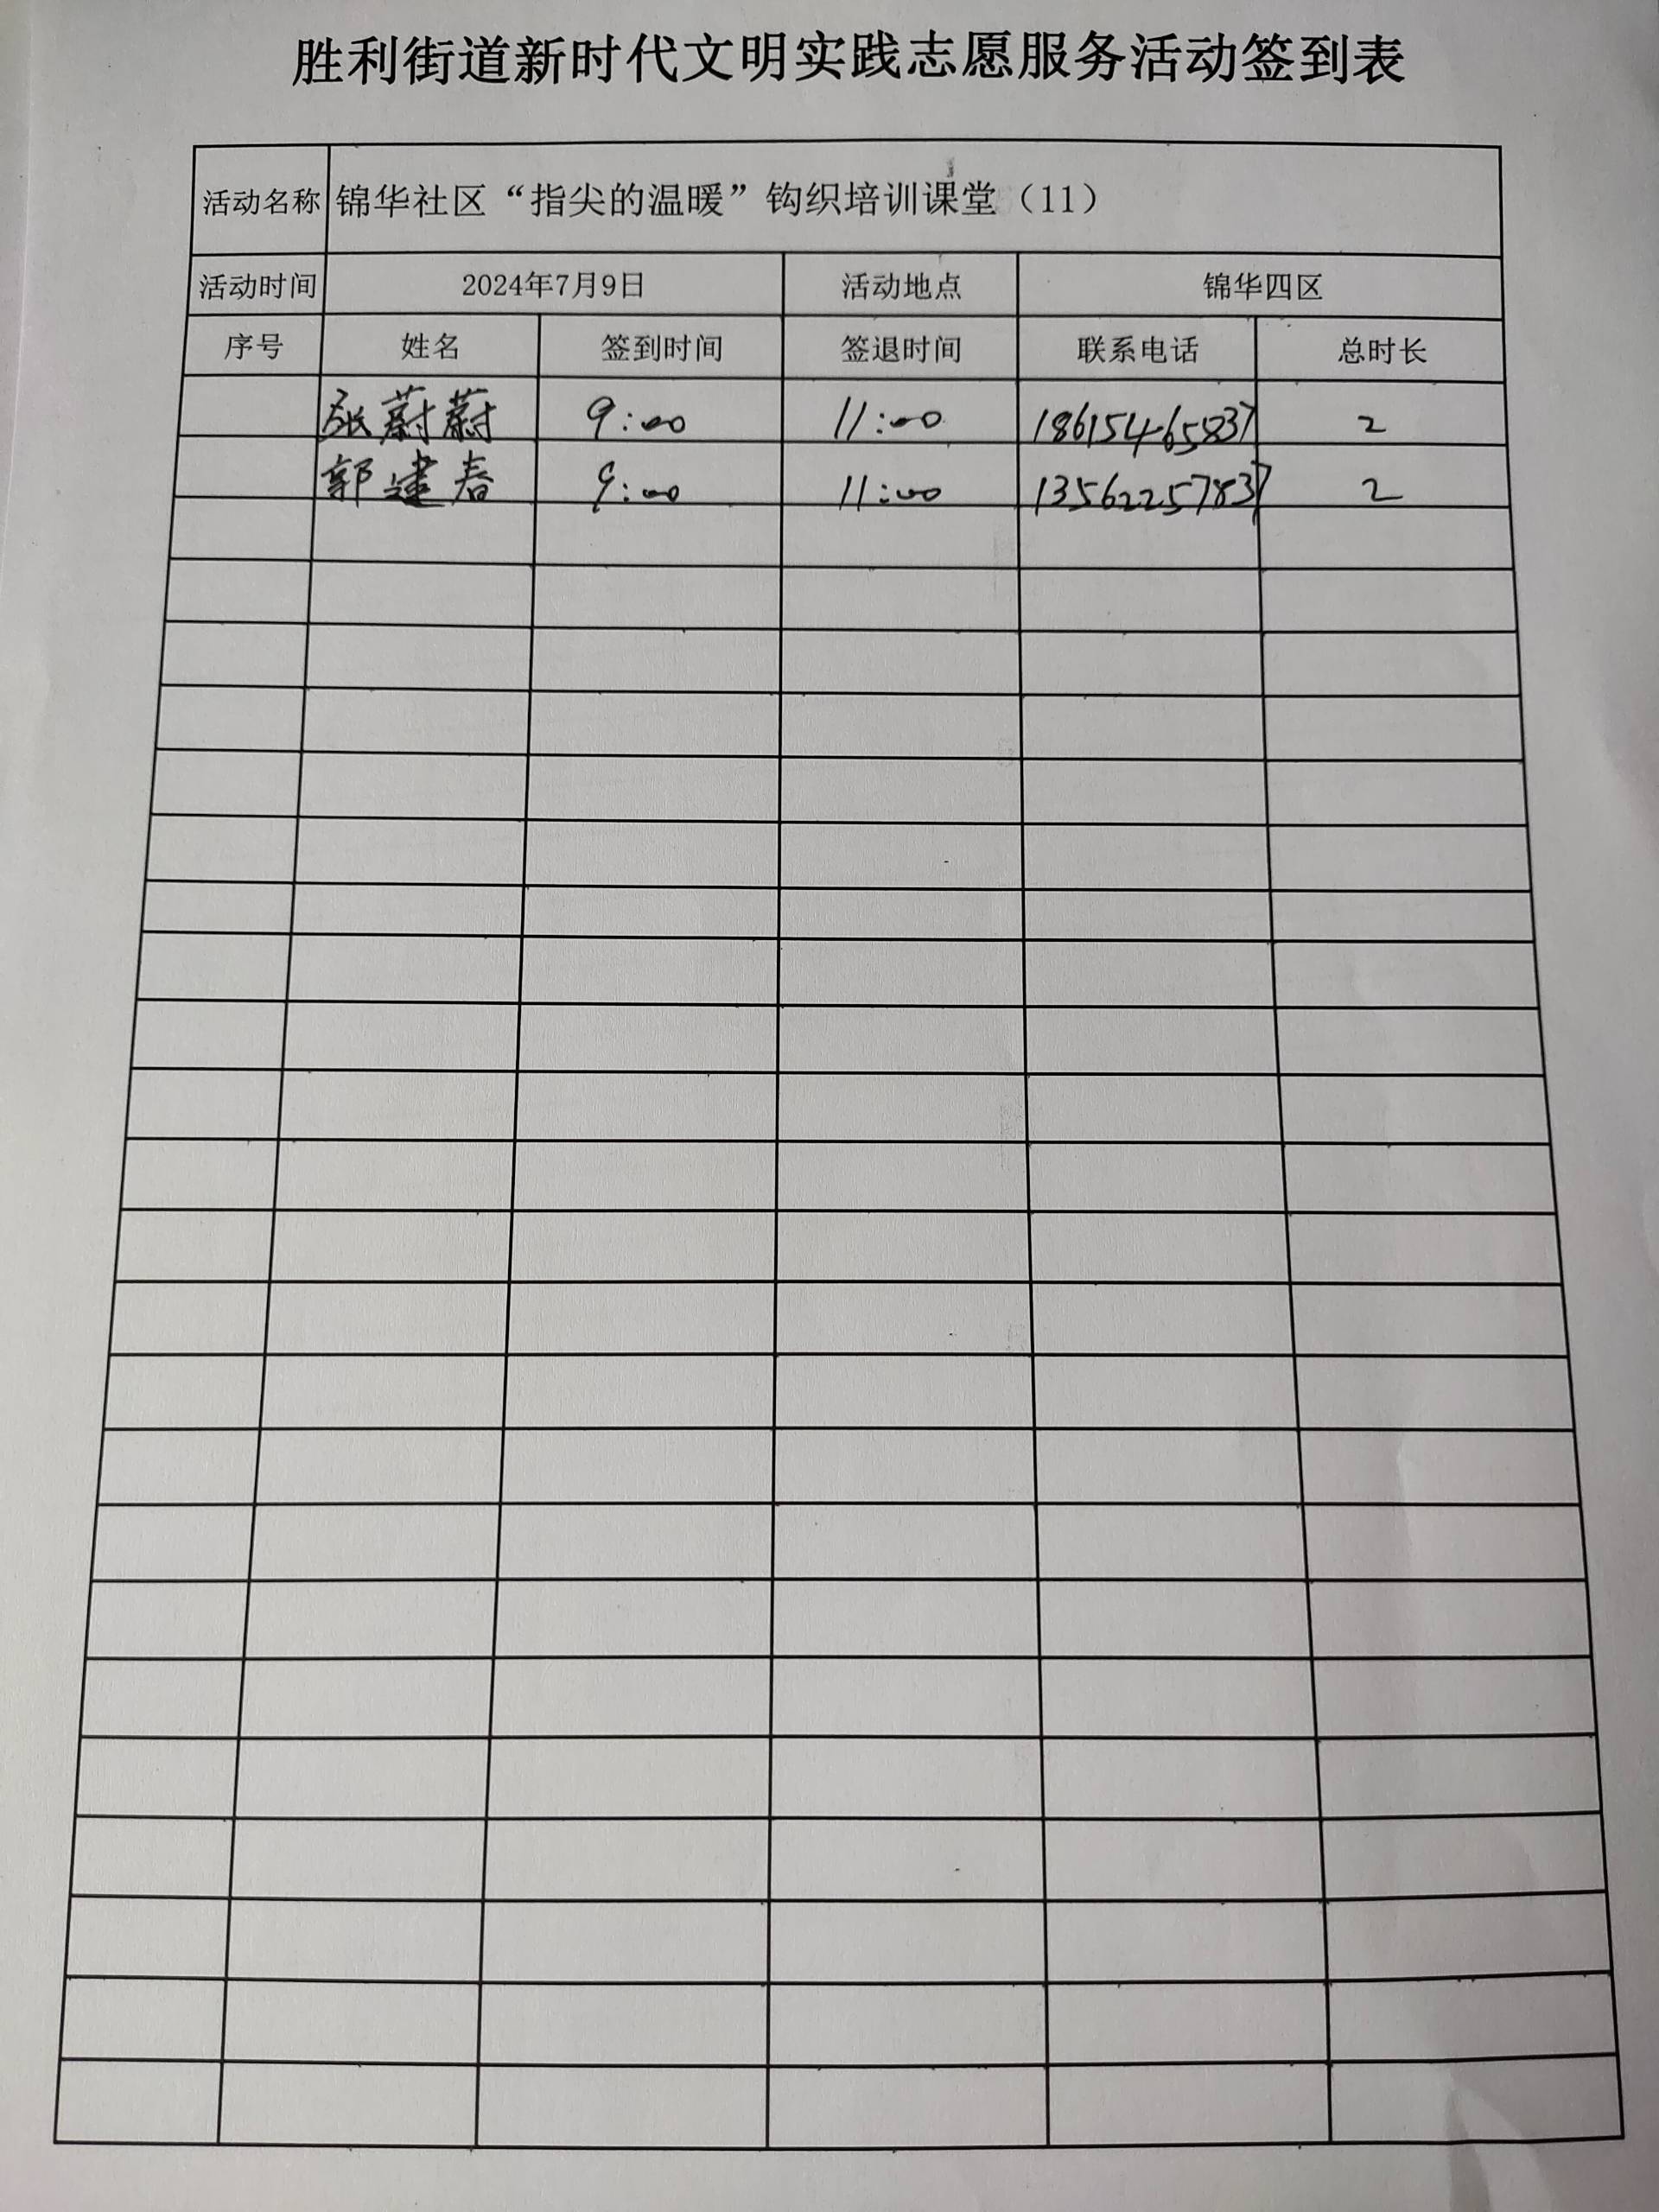 胜利街道新时代文明实践志愿服务活动签到表
活动名称 锦华社区“指尖的温暖”钩织培训课堂（11）
活动时间 2024年7月9日 活动地点 锦华四区
序号 姓名 签到时间 签退时间 联系电话 总时长
张蔚蔚 9:00 11:00 18615465837 2
郭建春 9:00 11:00 13562257837 2